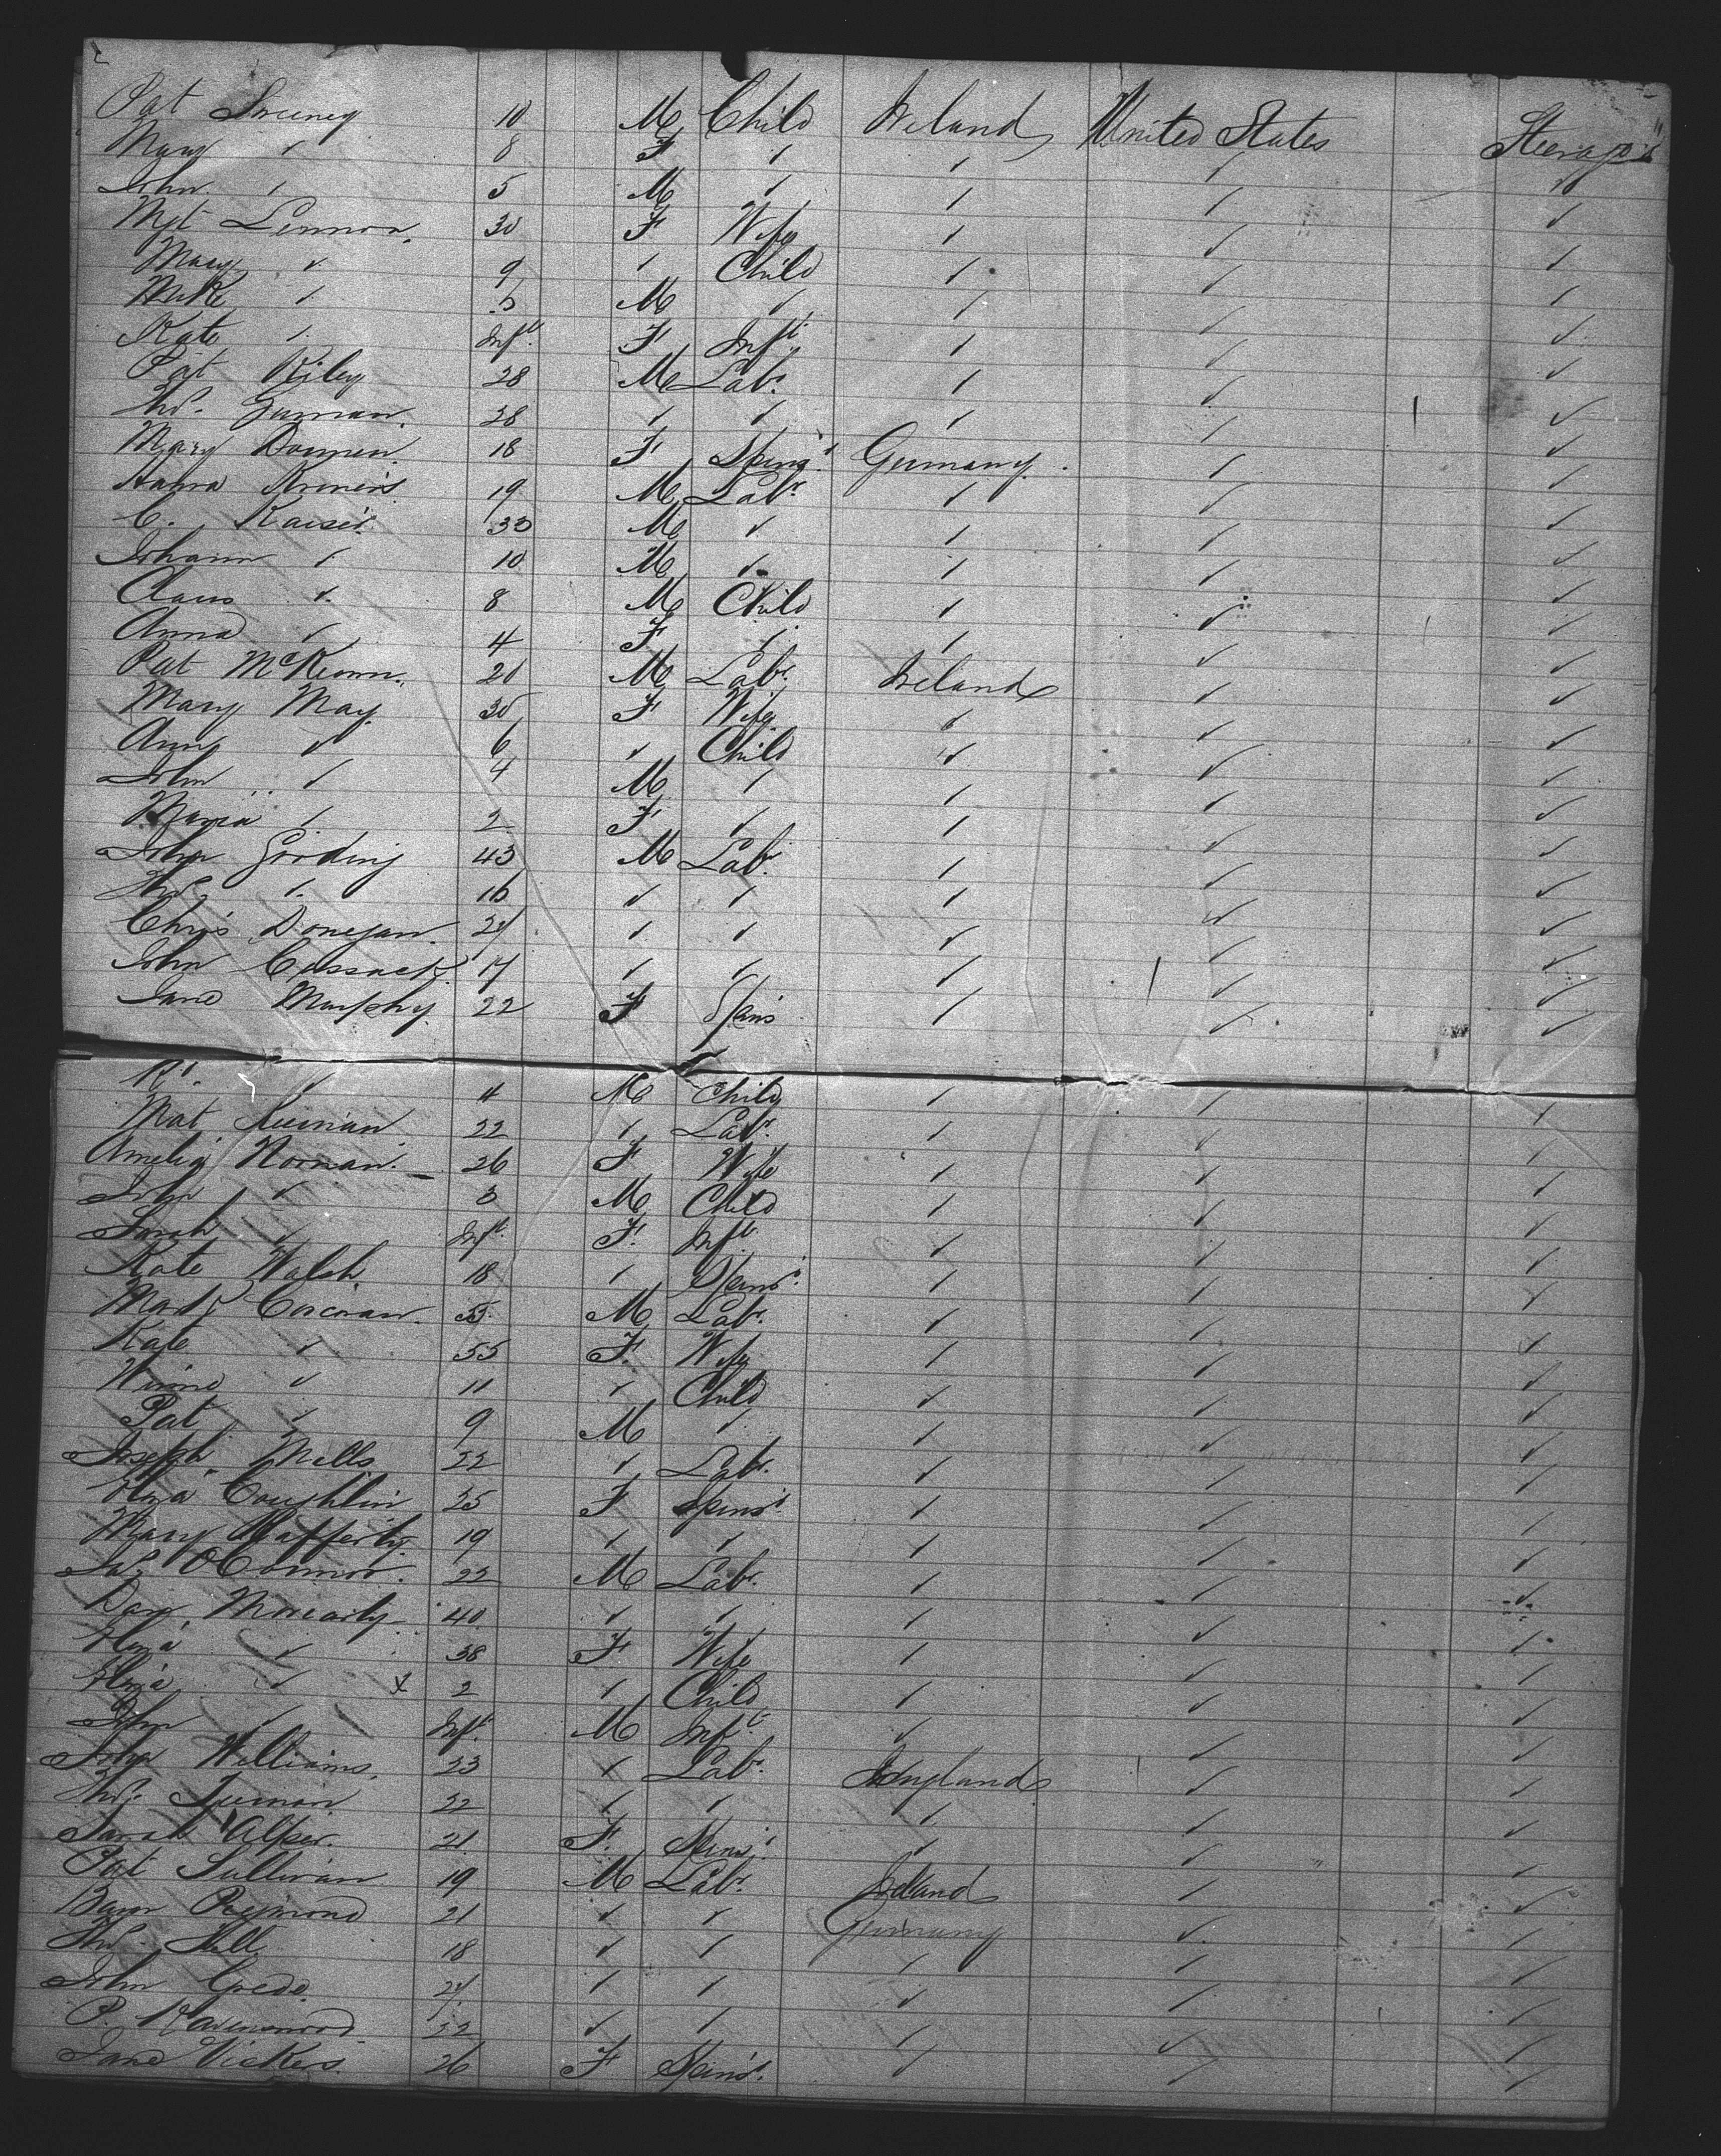 Pat Sweeney 10 M Child Ireland United States Steerage
Mary ✓ 8 F ✓ ✓ ✓ ✓
John ✓ 5 M ✓ ✓ ✓ ✓
Mgt Lennon 30 F Wife ✓ ✓ ✓
Mary ✓ 9 ✓ Child ✓ ✓ ✓
Mike ✓ 5 M ✓ ✓ ✓ ✓
Kate ✓ Inft F Inft ✓ ✓ ✓
Pat Riley 28 M Labr ✓ ✓ ✓
Thos. 28 ✓ ✓ ✓ ✓ ✓
Mary 18 F Spinst Germany ✓ ✓
19 M Labr ✓ ✓ ✓
C. Kaiser 30 M ✓ ✓ ✓ ✓
Johann ✓ 10 M ✓ ✓ ✓ ✓
Claus ✓ 8 M Child ✓ ✓ ✓
Anna ✓ 4 F ✓ ✓ ✓ ✓
Pat McKeown 20 M Labr Ireland ✓ ✓
Mary May 30 F Wife ✓ ✓ ✓
Ann ✓ 6 ✓ Child ✓ ✓ ✓
John ✓ 4 M ✓ ✓ ✓ ✓
Maria ✓ 2 F ✓ ✓ ✓ ✓
John Gooding 43 M Labr ✓ ✓ ✓
Thos ✓ 16 ✓ ✓ ✓ ✓ ✓
Chris Donegan 27 ✓ ✓ ✓ ✓ ✓
John Cussack 17 ✓ ✓ ✓ ✓ ✓
Jane Murphy 22 F Spins ✓ ✓ ✓
Rt. ✓ 4 M Child ✓ ✓ ✓
Mat Keenan 22 ✓ Labr ✓ ✓ ✓
Amelia Noonan 26 F Wife ✓ ✓ ✓
John ✓ 3 M Child ✓ ✓ ✓
Sarah ✓ Inft F Inft ✓ ✓ ✓
Kate Walsh 18 ✓ Spinst ✓ ✓ ✓
Mark Corcoran 55 M Labr ✓ ✓ ✓
Kate ✓ 55 F Wife ✓ ✓ ✓
Winne ✓ 11 ✓ Child ✓ ✓ ✓
Pat ✓ 9 M ✓ ✓ ✓ ✓
Joseph Mills 22 ✓ Labr ✓ ✓ ✓
Eliza Coughlin 25 F Spinst ✓ ✓ ✓
Mary Rafferty 19 ✓ ✓ ✓ ✓ ✓
Jas O'Connor 22 M Labr ✓ ✓ ✓
Dan Moriarty 40 ✓ ✓ ✓ ✓ ✓
Eliza ✓ 38 F Wife ✓ ✓ ✓
Eliza ✓ x 2 ✓ Child ✓ ✓ ✓
John ✓ Inft M Inft ✓ ✓ ✓
John Williams 23 ✓ Labr England ✓ ✓
Thos. 22 ✓ ✓ ✓ ✓ ✓
Sarah 21 F Spinst ✓ ✓ ✓
Pat Sullivan 19 M Labr Ireland ✓ ✓
21 ✓ ✓ Germany ✓ ✓
Thos. Hill 18 ✓ ✓ ✓ ✓ ✓
John 27 ✓ ✓ ✓ ✓ ✓
P. Ravenwood 22 ✓ ✓ ✓ ✓ ✓
Jane Vickers 26 F Spinst ✓ ✓ ✓